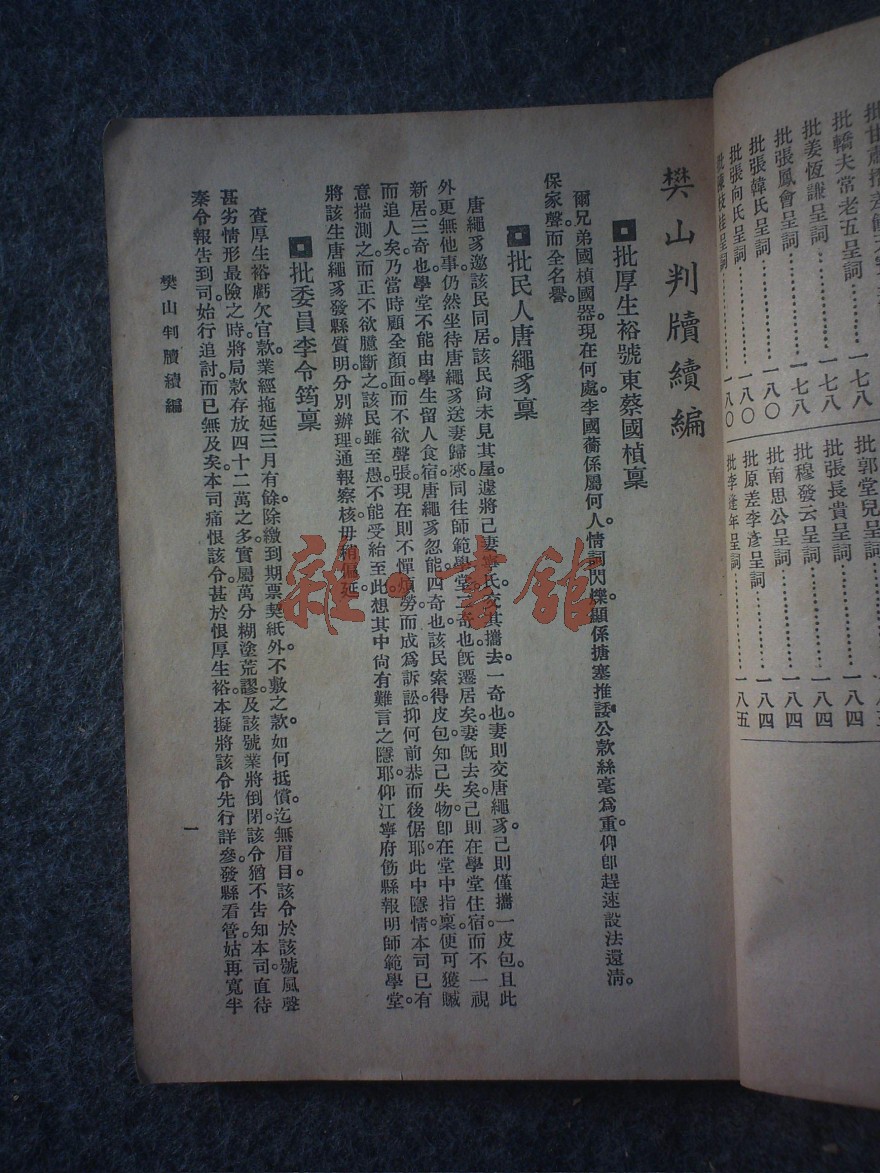 批甘肅
批轎夫常老五呈詞⋯⋯一七八
批姜恆謙呈詞⋯⋯一七八
批張鳳會呈詞⋯⋯一七八
批張韓氏呈詞⋯⋯一八〇
批張向氏呈詞⋯⋯一八〇
呈詞⋯⋯一八〇
批郭堂兒呈詞
批張長貴呈詞⋯⋯一八四
批穆發云呈詞⋯⋯一八四
批南思公呈詞⋯⋯一八四
批原差李彥呈詞⋯⋯一八四
批李逢年呈詞⋯⋯一八五
樊山判牘續編
批厚生裕號東蔡國楨稟
爾兄弟國楨國器。現在何處。李國蘅係屬何人。情詞閃爍。顯係搪塞推諉。公款絲毫爲重。仰卽趕速設法還清。
保家聲。而全名譽。
批民人唐繩豸稟
唐繩豸邀該民同居。該民尙未見其屋。遽將己妻曹氏交其攜去。一奇也。妻則交唐繩豸。己則僅攜一皮包。且此
外更無他事。仍然坐待唐繩豸送妻歸來。同往師範學堂。二奇也。旣遷居矣。妻旣去矣。己則在學堂住宿。而不一視
新居。三奇也。學堂不能由學生留人食宿。唐繩豸忽能。四奇也。該民索得皮包。知己失物。卽在堂中指稟。便可獲贓
而追人矣。乃當時顧全顏面。而不欲聲張。現在則不憚煩勞。而成爲訴訟。抑何前恭而後倨耶。此中隱情。本司已有
意揣測之。而正不欲臆斷之。該民雖至愚。不能受紿至此。想其中尙有難言之隱耶。仰江寧府飭縣報明師範學堂。
將該生唐繩豸發縣質明。分別辦理。通報察核。毋稍偏延。
批委員李令筠稟
查厚生裕虧欠官款。業經拖延三月有餘。除繳到期票契紙外。不敷之款。如何抵償。迄無眉目。該令於該號風聲
甚劣情形最險之時。將局款存放四十二萬之多。實屬萬分糊塗荒謬。及該號業將倒閉。該令猶不告知本司。直待
秦令報告到司。始行追討。而已無及矣。本司痛恨該令。甚於恨厚生裕。本擬將該令先行詳參。發縣看管。姑再寬半
樊山判牘續編
一
雜·書館